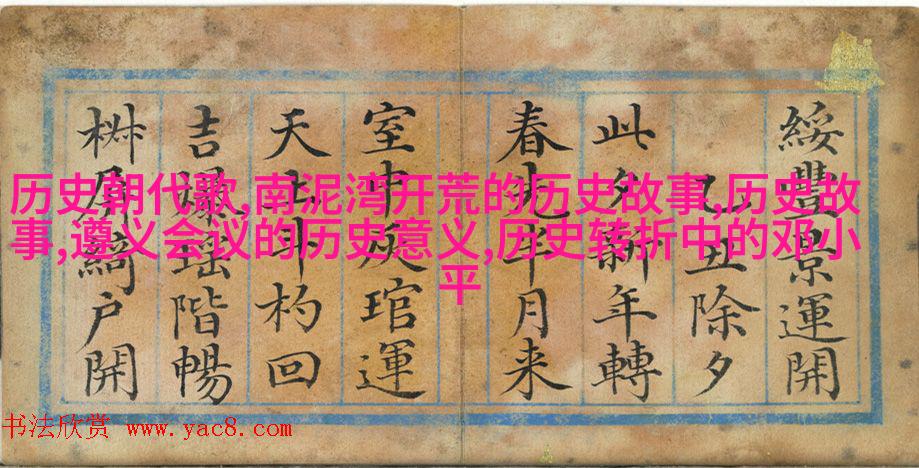 历史朝代歌,南泥湾开荒的历史故事,历史故
事,遵义会议的历史意义,历史转折中的邓小
平
綏豐景運開
丑除夕
此夕新年轉
春先半月来
室中灰琯運
天上斗杓回
吉爆瑶階暢
綺戶開
书法欣赏 www.yac8.com